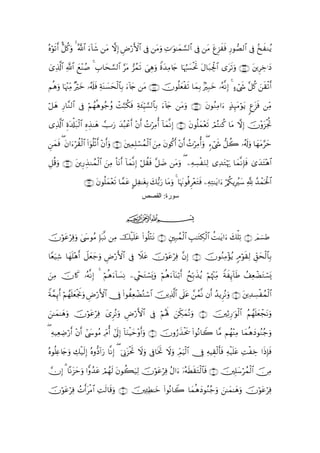 وَيَوْمَ يُنفَخُ فِي الصُّورِ فَفَزِعَ مَن فِي السَّمَاوَاتِ وَمَن فِي الْأَرْضِ إِلَّا مَن شَاءَ اللَّهُ ۚ وَكُلٌّ أَتَوْهُ
دَاخِرِينَ ﴿٨٧﴾ وَتَرَى الْجِبَالَ تَحْسَبُهَا جَامِدَةً وَهِيَ تَمُرُّ مَرَّ السَّحَابِ ۚ صُنْعَ اللَّهِ الَّذِي
أَتْقَنَ كُلَّ شَيْءٍ ۚ إِنَّهُ خَبِيرٌ بِمَا تَفْعَلُونَ ﴿٨٨﴾ مَن جَاءَ بِالْحَسَنَةِ فَلَهُ خَيْرٌ مِّنْهَا وَهُم
مِّن فَزَعٍ يَوْمَئِذٍ آمِنُونَ ﴿٨٩﴾ وَمَن جَاءَ بِالسَّيِّئَةِ فَكُبَّتْ وُجُوهُهُمْ فِي النَّارِ هَلْ
تُجْزَوْنَ إِلَّا مَا كُنتُمْ تَعْمَلُونَ ﴿٩٠﴾ إِنَّمَا أُمِرْتُ أَنْ أَعْبُدَ رَبَّ هَٰذِهِ الْبَلْدَةِ الَّذِي
حَرَّمَهَا وَلَهُ كُلُّ شَيْءٍ ۖ وَأُمِرْتُ أَنْ أَكُونَ مِنَ الْمُسْلِمِينَ ﴿٩١﴾ وَأَنْ أَتْلُوَ الْقُرْآنَ ۖ فَمَنِ
اهْتَدَىٰ فَإِنَّمَا يَهْتَدِي لِنَفْسِهِ ۖ وَمَن ضَلَّ فَقُلْ إِنَّمَا أَنَا مِنَ الْمُنذِرِينَ ﴿٩٢﴾ وَقُلِ
الْحَمْدُ لِلَّهِ سَيُرِيكُمْ آيَاتِهِ فَتَعْرِفُونَهَا ۚ وَمَا رَبُّكَ بِغَافِلٍ عَمَّا تَعْمَلُونَ ﴿٩٣﴾
سورة: القصص
بِسْمِ اللَّهِ الرَّحْمَٰنِ الرَّحِيمِ
طسم ﴿١﴾ تِلْكَ آيَاتُ الْكِتَابِ الْمُبِينِ ﴿٢﴾ نَتْلُو عَلَيْكَ مِن نَّبَإِ مُوسَىٰ وَفِرْعَوْنَ
بِالْحَقِّ لِقَوْمٍ يُؤْمِنُونَ ﴿٣﴾ إِنَّ فِرْعَوْنَ عَلَا فِي الْأَرْضِ وَجَعَلَ أَهْلَهَا شِيَعًا
يَسْتَضْعِفُ طَائِفَةً مِّنْهُمْ يُذَبِّحُ أَبْنَاءَهُمْ وَيَسْتَحْيِي نِسَاءَهُمْ ۚ إِنَّهُ كَانَ مِنَ
الْمُفْسِدِينَ ﴿٤﴾ وَنُرِيدُ أَن نَّمُنَّ عَلَى الَّذِينَ اسْتُضْعِفُوا فِي الْأَرْضِ وَنَجْعَلَهُمْ أَئِمَّةً
وَنَجْعَلَهُمُ الْوَارِثِينَ ﴿٥﴾ وَنُمَكِّنَ لَهُمْ فِي الْأَرْضِ وَنُرِيَ فِرْعَوْنَ وَهَامَانَ
وَجُنُودَهُمَا مِنْهُم مَّا كَانُوا يَحْذَرُونَ ﴿٦﴾ وَأَوْحَيْنَا إِلَىٰ أُمِّ مُوسَىٰ أَنْ أَرْضِعِيهِ ۖ
فَإِذَا خِفْتِ عَلَيْهِ فَأَلْقِيهِ فِي الْيَمِّ وَلَا تَخَافِي وَلَا تَحْزَنِي ۖ إِنَّا رَادُّوهُ إِلَيْكِ وَجَاعِلُوهُ
مِنَ الْمُرْسَلِينَ ﴿٧﴾ فَالْتَقَطَهُ آلُ فِرْعَوْنَ لِيَكُونَ لَهُمْ عَدُوًّا وَحَزَنًا ۗ إِنَّ
فِرْعَوْنَ وَهَامَانَ وَجُنُودَهُمَا كَانُوا خَاطِئِينَ ﴿٨﴾ وَقَالَتِ امْرَأَتُ فِرْعَوْنَ